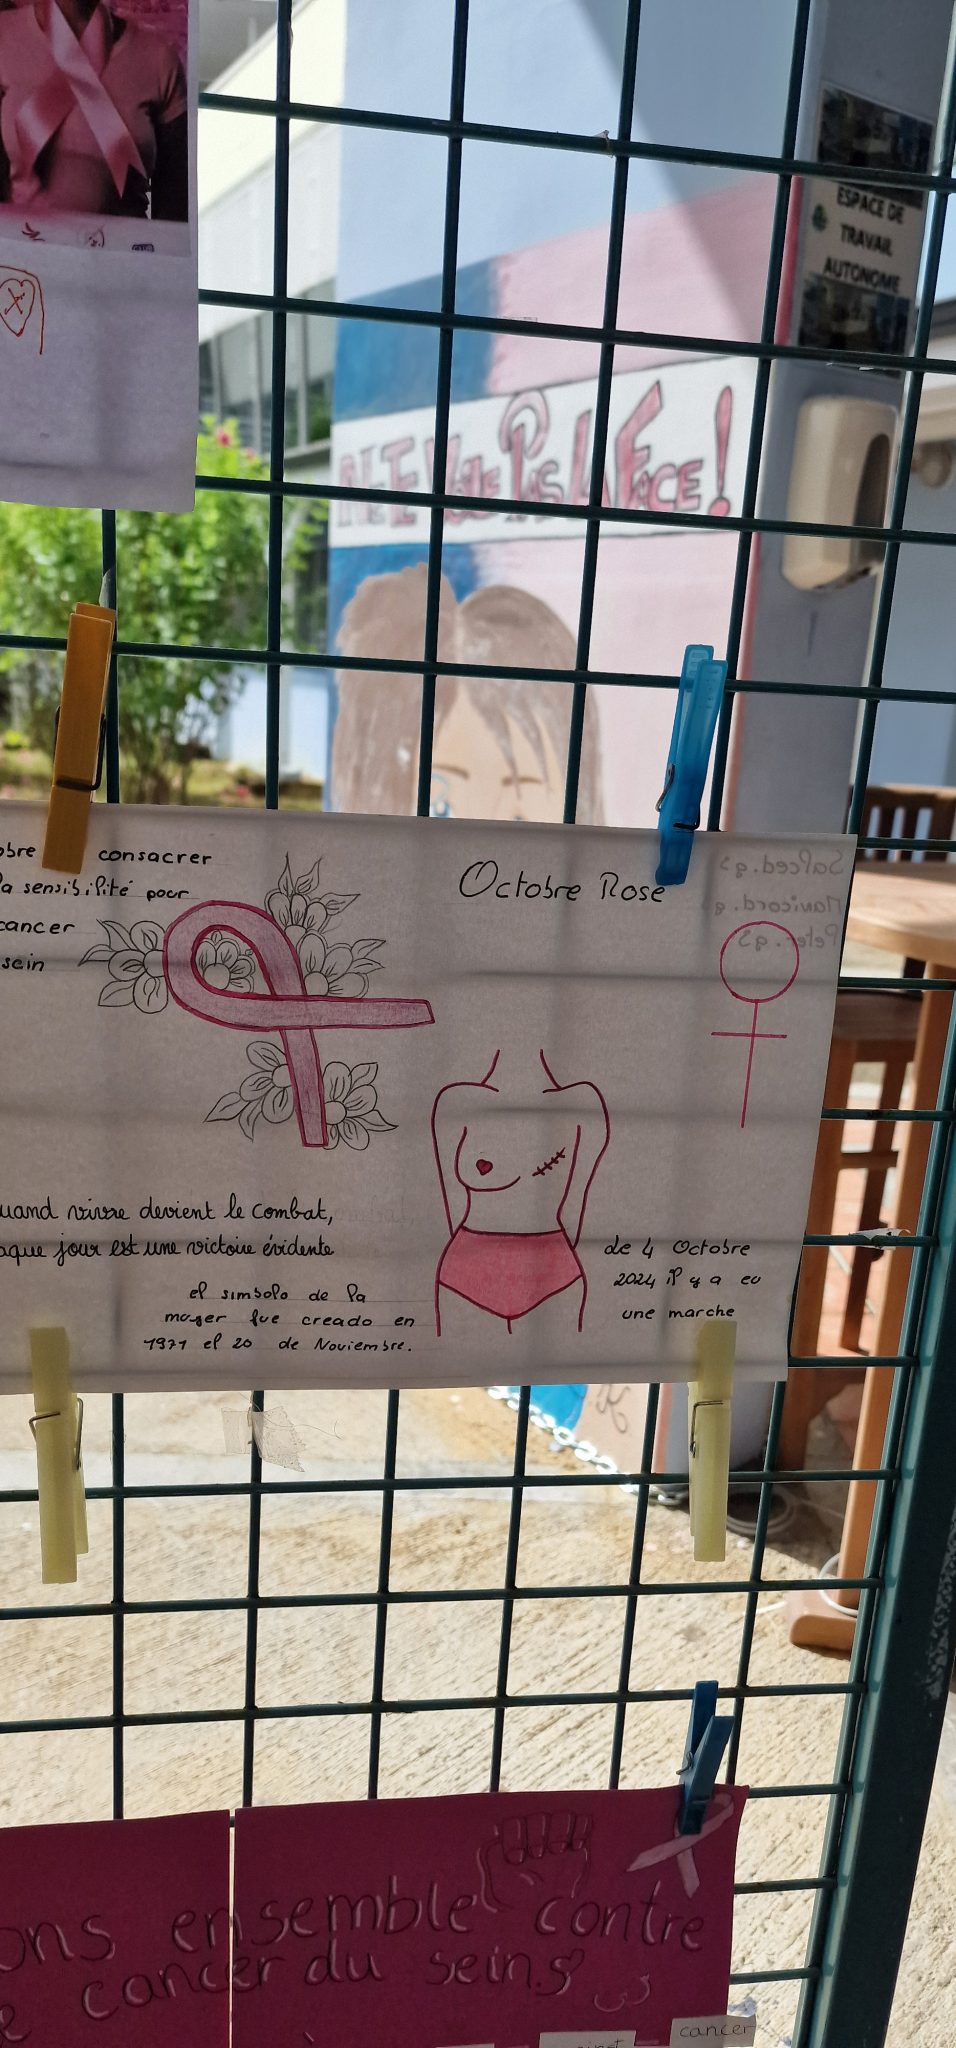 ESPACE DE
TRAVAIL
AUTONOME
NE TE VOILE PAS LA FACE!
obre consacrer
la sensibilité pour
cancer
sein
Octobre Rose
uand vivre devient le combat,
aque jour est une victoire évidente
el simbolo de la
mayer fue creado en
1971 el 20 de Noviembre.
de 4 Octobre
2024 il y a eu
une marche
ons ensemble contre
e cancer du sein.s
cancer